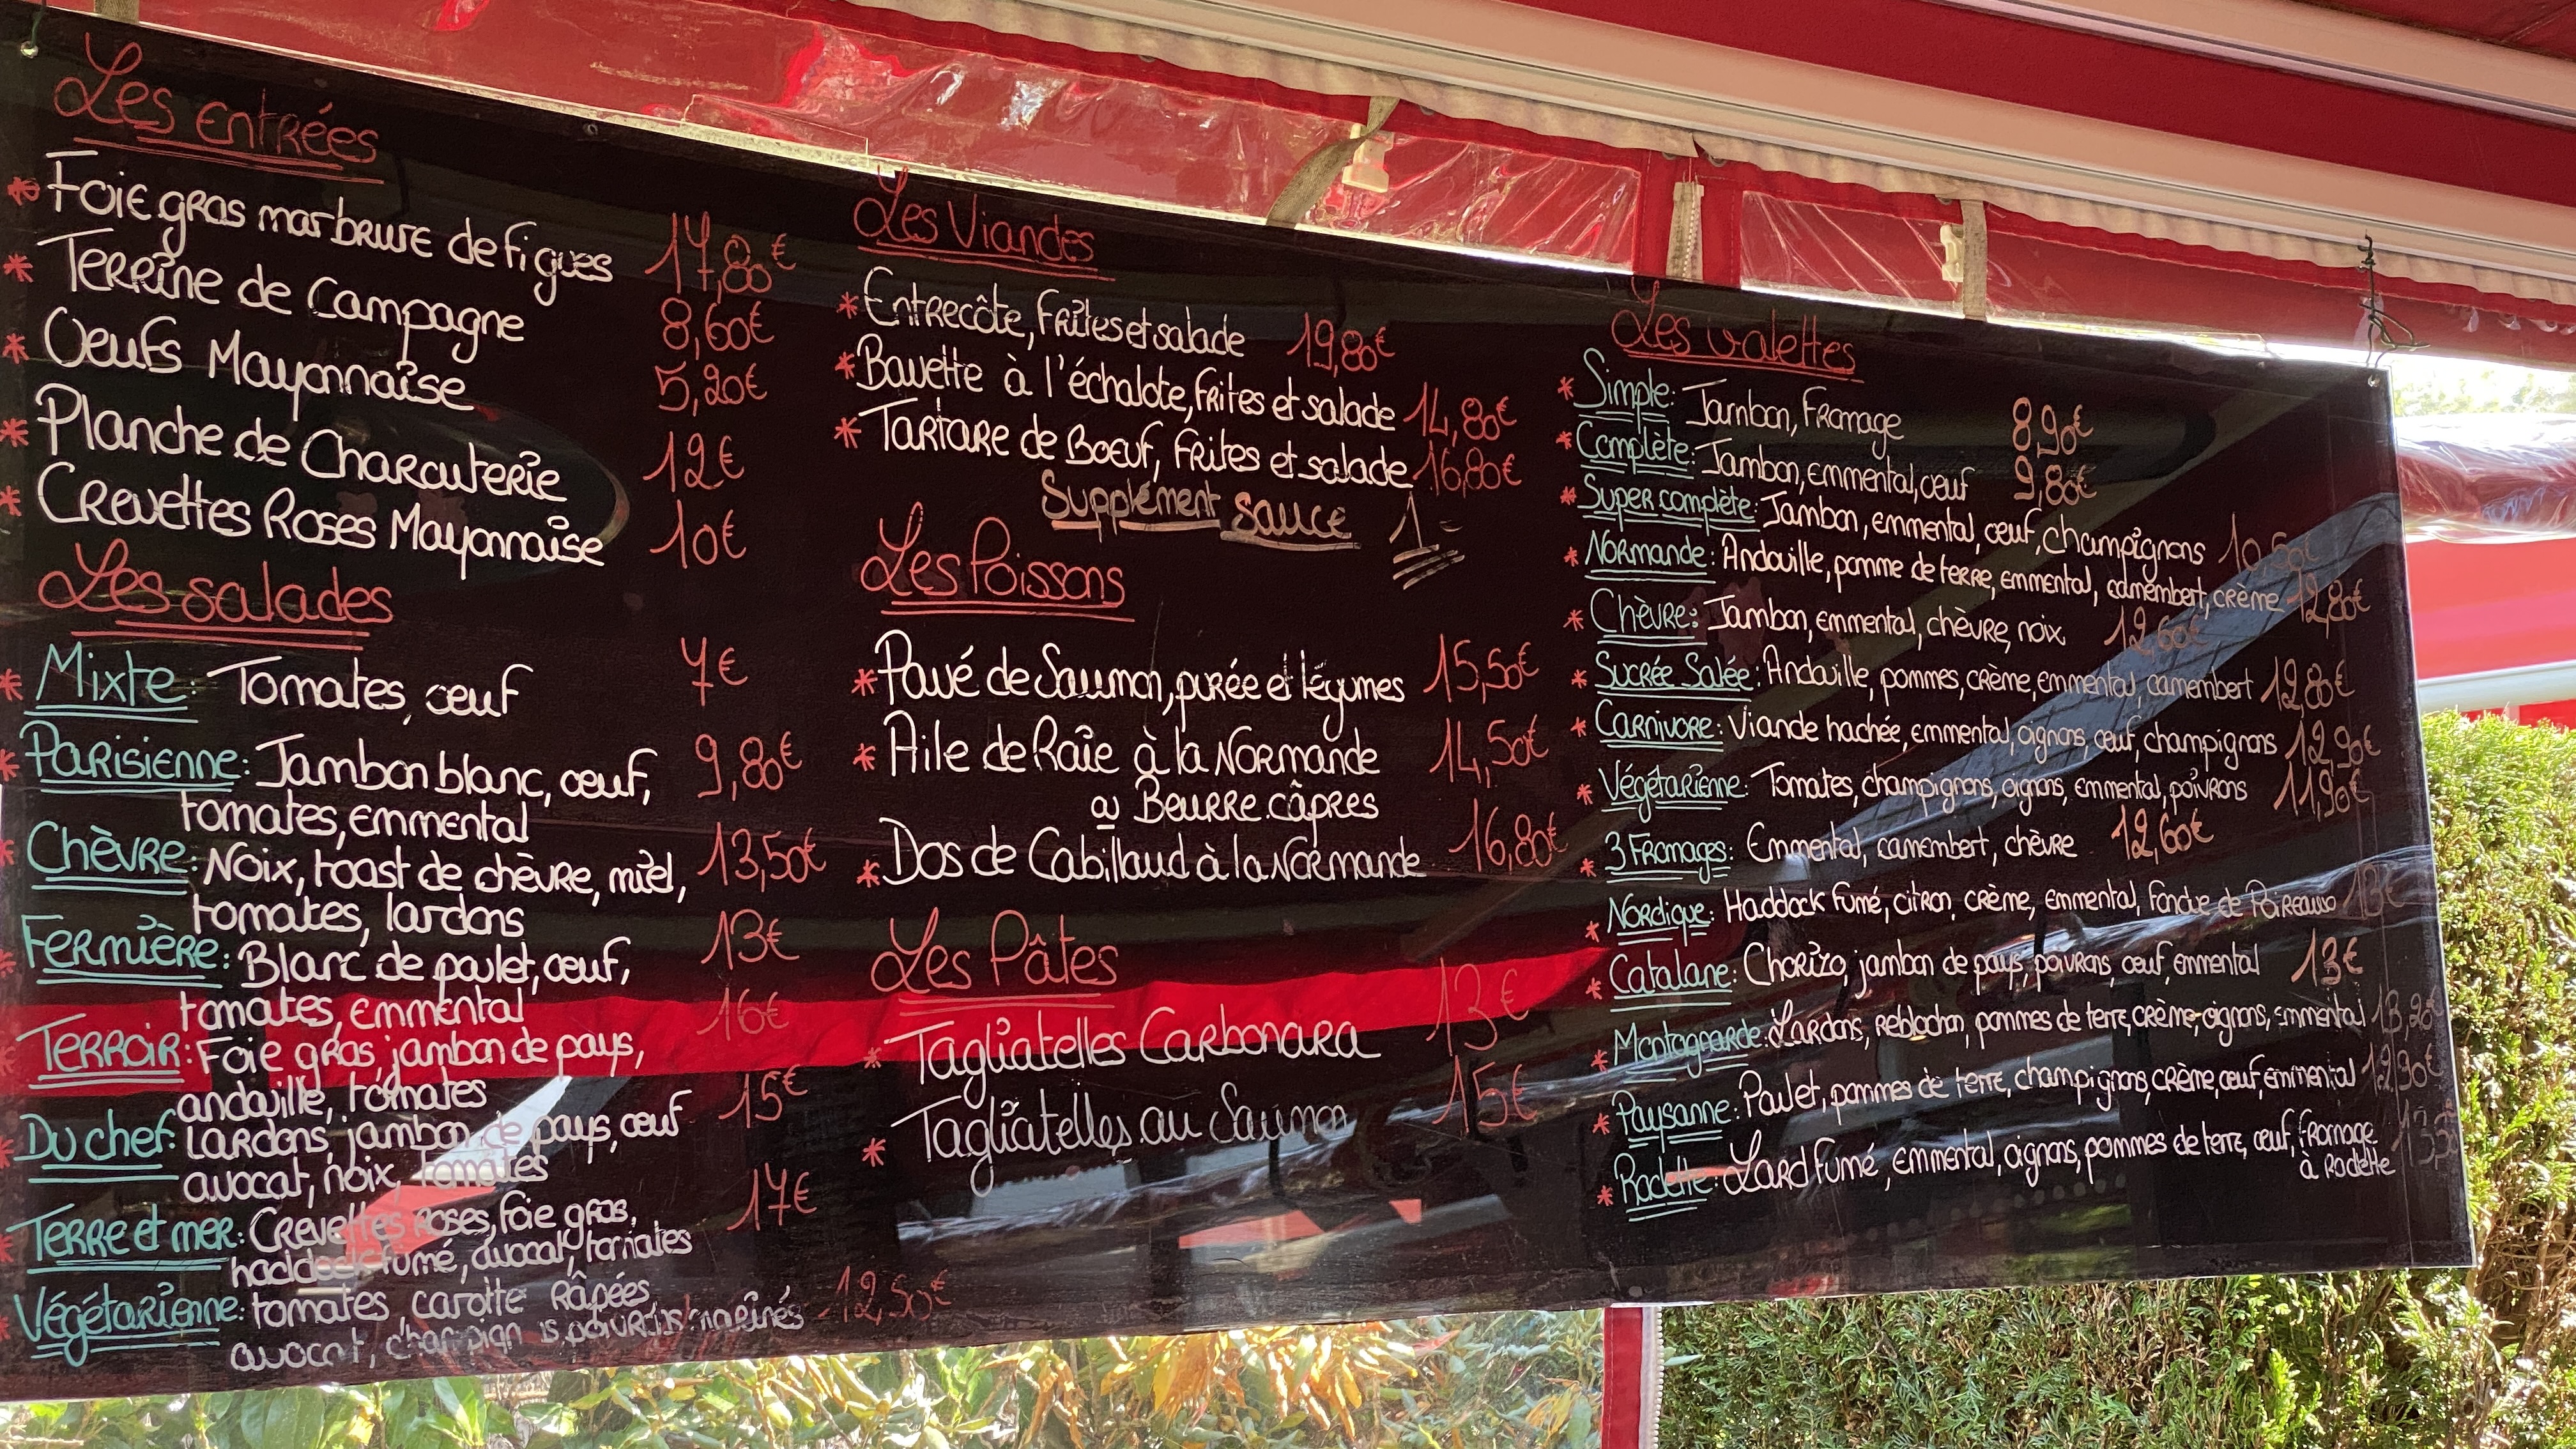 Les entrées
* Foie gras marbrure de figues 17,80€
* Terrine de Campagne 8,60€
* Oeufs Mayonnaise 5,20€
* Planche de Charcuterie 12€
* Crevettes Roses Mayonnaise 10€
Les salades
* Mixte: Tomates, œuf 7€
* Parisienne: Jambon blanc, œuf, 9,80€
tomates, emmental
* Chèvre: Noix, toast de chèvre, miel, 13,50€
tomates, lardons
* Fermière: Blanc de poulet, œuf, 13€
tomates, emmental
* Terroir: Foie gras, jambon de pays, 16€
andouille, tomates
* Du chef: Lardons, jambon de pays, œuf 15€
avocat, noix, tomates
* Terre et mer: Crevettes roses, foie gras, 17€
haddock fumé, avocat, tomates
* Végétarienne: tomates, carotte râpées 12,50€
avocat, champignons, poivrons marinés
Les Viandes
* Entrecôte, frites et salade 19,80€
* Bavette à l'échalote, frites et salade 14,80€
* Tartare de Boeuf, frites et salade 16,80€
Supplément sauce 1-
Les Poissons
* Pavé de Saumon, purée et légumes 15,50€
* Aile de Raie à la Normande 14,50€
ou Beurre câpres
* Dos de Cabillaud à la Normande 16,80€
Les Pâtes
* Tagliatelles Carbonara 13€
* Tagliatelles au Saumon 15€
Les Galettes
* Simple: Jambon, Fromage 8,90€
* Complète: Jambon, emmental, œuf 9,80€
* Super complète: Jambon, emmental, œuf, champignons
* Normande: Andouille, pomme de terre, emmental, camembert, crème 12,80€
* Chèvre: Jambon, emmental, chèvre, noix 12,60€
* Sucrée Salée: Andouille, pommes, crème, emmental, camembert 12,80€
* Carnivore: Viande hachée, emmental, oignons, œuf, champignons 12,90€
* Végétarienne: Tomates, champignons, oignons, emmental, poivrons 11,90€
* 3 Fromages: Emmental, camembert, chèvre 12,60€
* Nordique: Haddock fumé, citron, crème, emmental, fondue de Poireaux 13€
* Catalane: Chorizo, jambon de pays, poivrons, œuf, emmental 13€
* Montagnarde: Lardons, reblochon, pommes de terre, crème, oignons, emmental 13,20€
* Paysanne: Poulet, pommes de terre, champignons, crème, œuf, emmental 12,90€
* Raclette: Lard fumé, emmental, oignons, pommes de terre, œuf, fromage
à Raclette